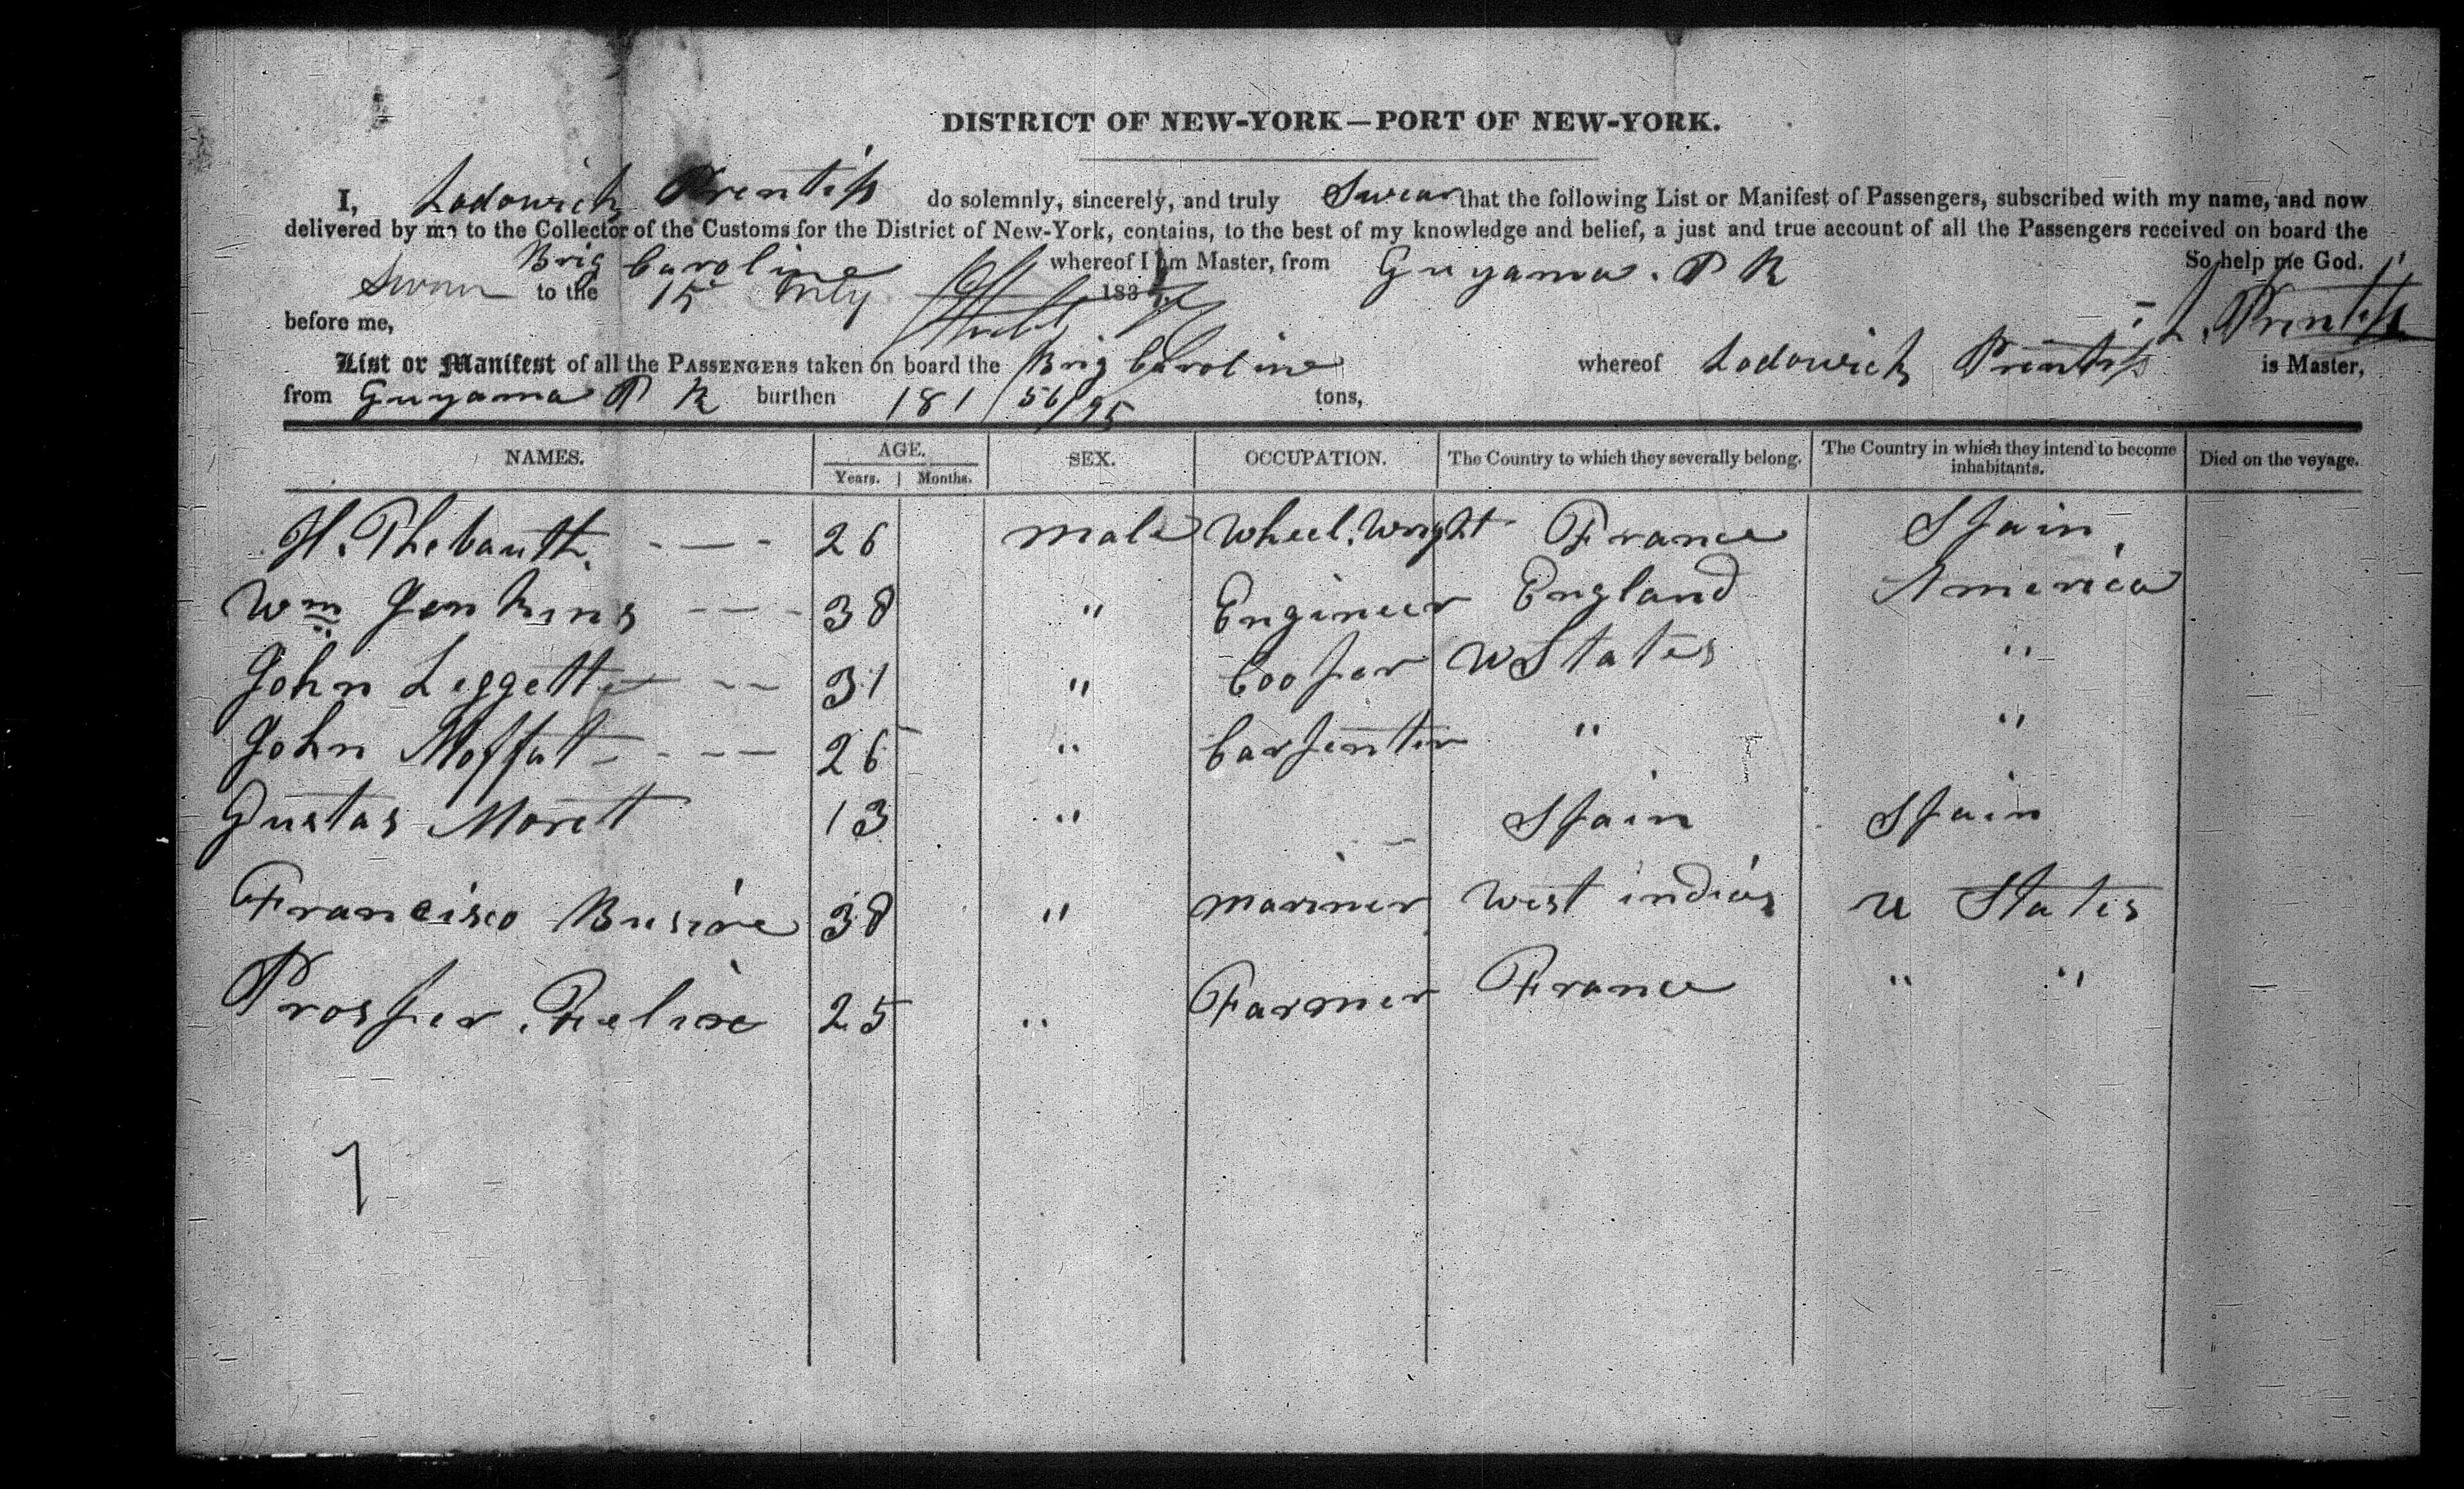 DISTRICT OF NEW-YORK—PORT OF NEW-YORK.
I, Lodowick Prentiss do solemnly, sincerely, and truly Swear that the following List or Manifest of Passengers, subscribed with my name, and now
delivered by me to the Collector of the Customs for the District of New-York, contains, to the best of my knowledge and belief, a just and true account of all the Passengers received on board the
Brig Caroline whereof I am Master, from Guyama. P R So help me God.
Sworn to the 15 July 183
before me, L. Prentiss
List or Manifest of all the PASSENGERS taken on board the Brig Caroline whereof Lodowick Prentiss is Master,
from Guyama P R burthen 181 56/95 tons,
NAMES. AGE. SEX. OCCUPATION. The Country to which they severally belong. The Country in which they intend to become inhabitants. Died on the voyage.
Years. Months.
H. Thebauth. 26 male Wheel.Wright France Spain
Wm Jenkins 38 " Engineer England America
John Leggett 31 " Cooper U States "
John Moffat 26 " Carpenter " "
Gustas Morett 13 " — Spain Spain
Francisco Busire 38 " mariner West indies U States
Prosper. Felire 25 " Farmer France " "
7